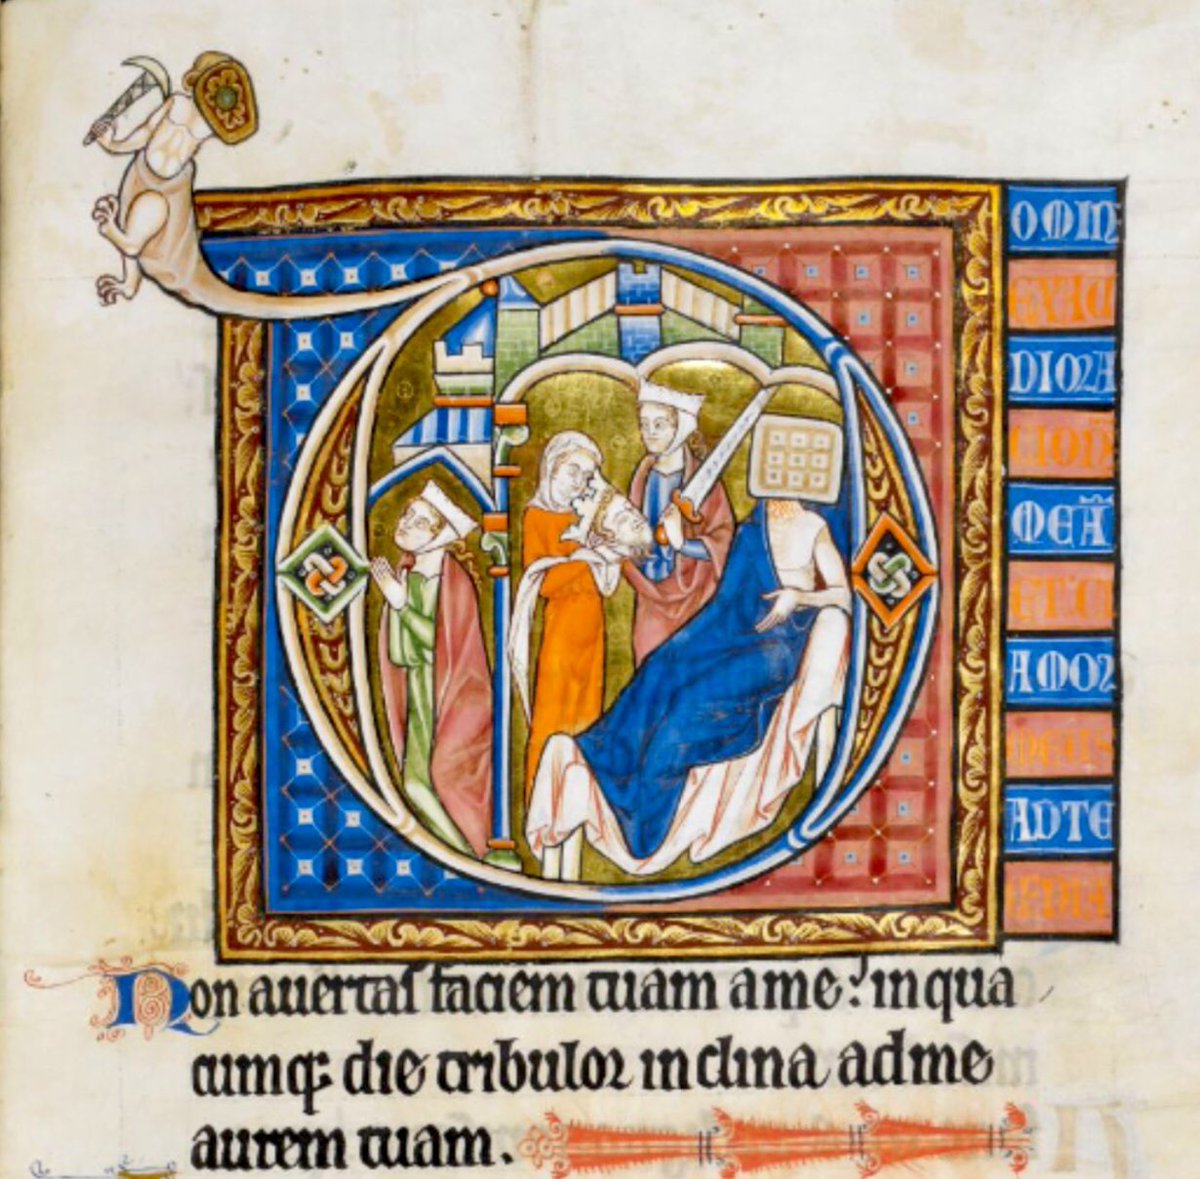 OMIN
EXAU
DIORA
CION̄
MEĀ
ET CL
AMOR
MEUS
ADTE
UENIA
Non auertaſ faciem tuam a me: in qua
cumq; die tribulor inclina ad me
aurem tuam.